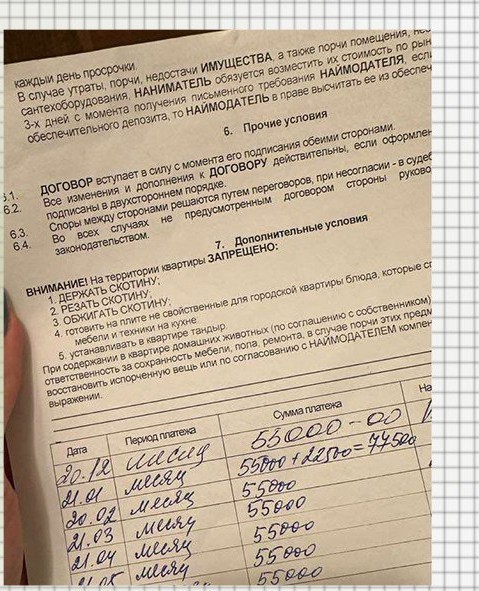 каждый день просрочки.
В случае утраты, порчи, недостачи ИМУЩЕСТВА, а также порчи помещения,
сантехоборудования, НАНИМАТЕЛЬ обязуется возместить их стоимость по
3-х дней с момента получения письменного требования НАЙМОДАТЕЛЯ,
обеспечительного депозита, то НАЙМОДАТЕЛЬ в праве высчитать ее из
6. Прочие условия
6.1. ДОГОВОР вступает в силу с момента его подписания обеими сторонами.
6.2. Все изменения и дополнения к ДОГОВОРУ действительны, если
подписаны в двухстороннем порядке.
6.3. Споры между сторонами решаются путем переговоров, при несогласии - в
6.4. Во всех случаях не предусмотренным договором стороны
законодательством.
7. Дополнительные условия
ВНИМАНИЕ! На территории квартиры ЗАПРЕЩЕНО:
1. ДЕРЖАТЬ СКОТИНУ;
2. РЕЗАТЬ СКОТИНУ;
3. ОБЖИГАТЬ СКОТИНУ;
4. готовить на плите не свойственные для городской квартиры блюда, которые
мебели и техники на кухне.
5. устанавливать в квартире тандыр.
При содержании в квартире домашних животных (по соглашению с собственником)
ответственность за сохранность мебели, пола, ремонта, в случае порчи этих
восстановить испорченную вещь или по согласованию с НАЙМОДАТЕЛЕМ
выражении.
Дата Период платежа Сумма платежа
20.12 месяц 55000-00
21.01 месяц 55000 + 22500 = 77500
20.02 месяц 55000
21.03 месяц 55000
21.04 месяц 55000
месяц 55000
55000